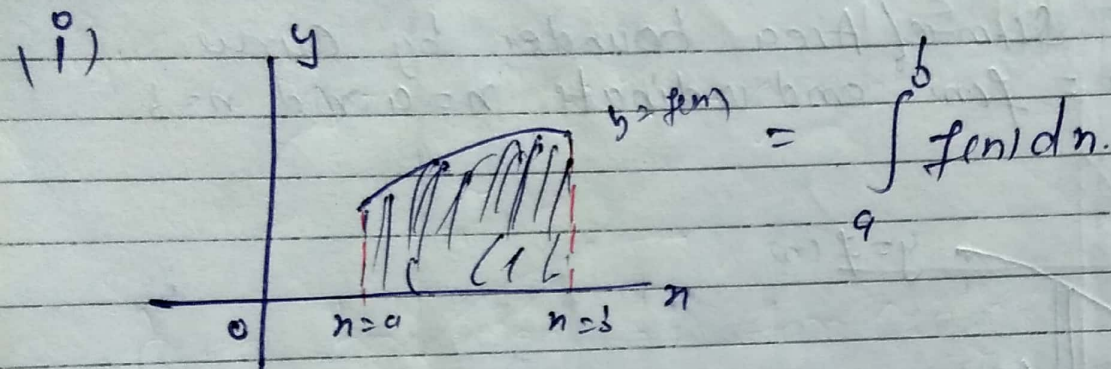 (i)
y
y = f(x)
= ∫_a^b f(x) dx.
x
0
x = a
x = b